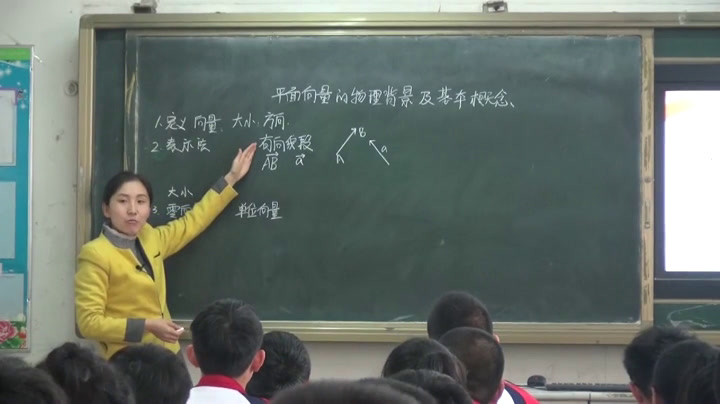 平面向量的物理背景及基本概念、
1.定义 向量 大小.方向.
2.表示法 有向线段
AB a
A B a
大小
3.零向 单位向量